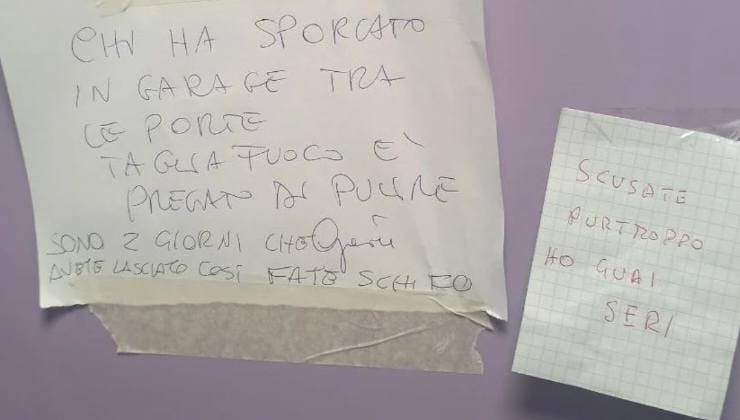 CHI HA SPORCATO
IN GARAGE TRA
LE PORTE
TAGLIA FUOCO E'
PREGATO DI PULIRE
SONO 2 GIORNI CHE
AVETE LASCIATO COSÌ FATE SCHIFO
SCUSATE
PURTROPPO
HO GUAI
SERI